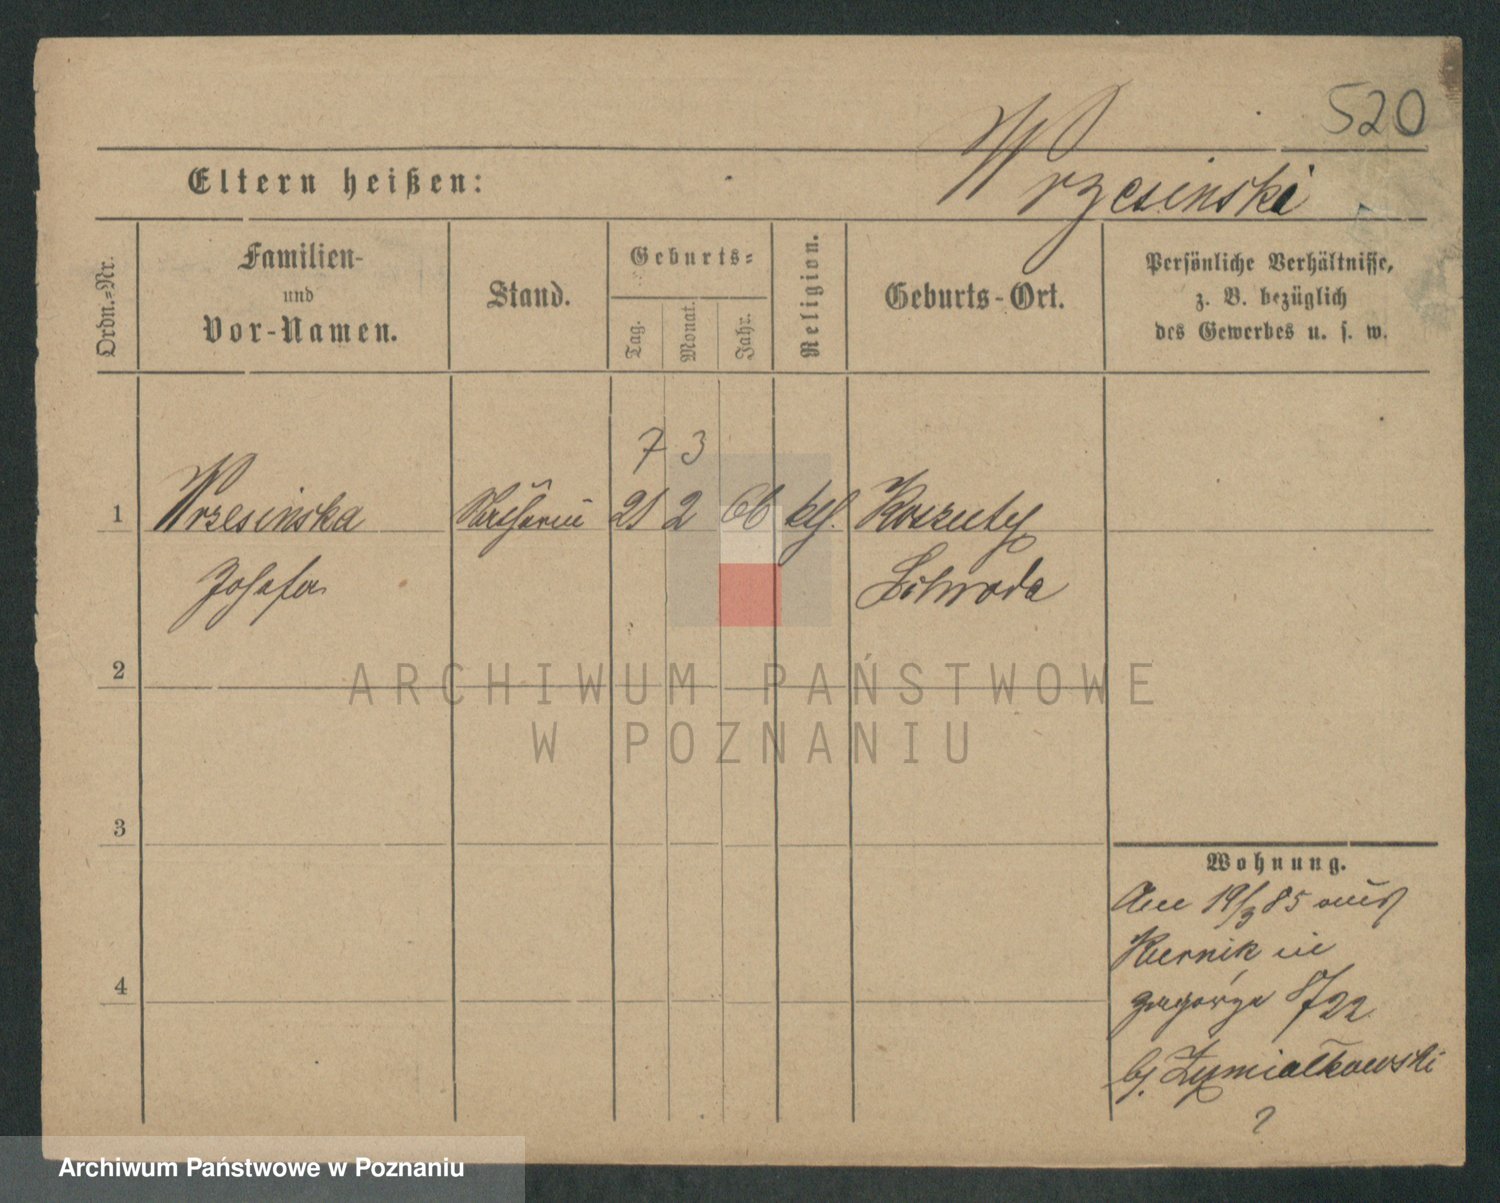 520
Wrzesinski
Eltern heißen:
Ordn.=Nr.
Familien-
und
Vor-Namen.
Stand.
Geburts=
Tag.
Monat.
Jahr.
Religion.
Geburts-Ort.
Persönliche Verhältnisse,
z. B. bezüglich
des Gewerbes u. s. w.
7 3
1 Wrzesinska 21 2 66 kth. Koszuty
Josefa Schroda
2
3
4
Wohnung.
Am 19/3 85 aus
Kurnik in
Zagórze 8/22
bj. Zymiałkowski
?
ARCHIWUM PAŃSTWOWE
W POZNANIU
Archiwum Państwowe w Poznaniu